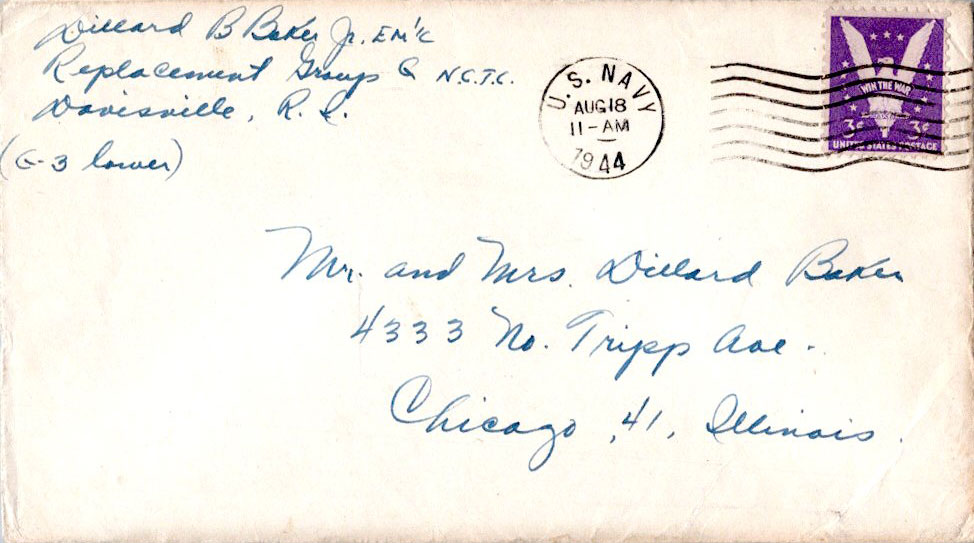 Dillard B Baker Jr. EM1/c
Replacement Group G N.C.T.C.
Davisville, R. I.
(G-3 lower)
U.S. NAVY
AUG 18
11-AM
1944
WIN THE WAR
3¢ 3¢
UNITED STATES POSTAGE
Mr. and Mrs. Dillard Baker
4333 No. Tripp Ave.
Chicago, 41, Illinois.